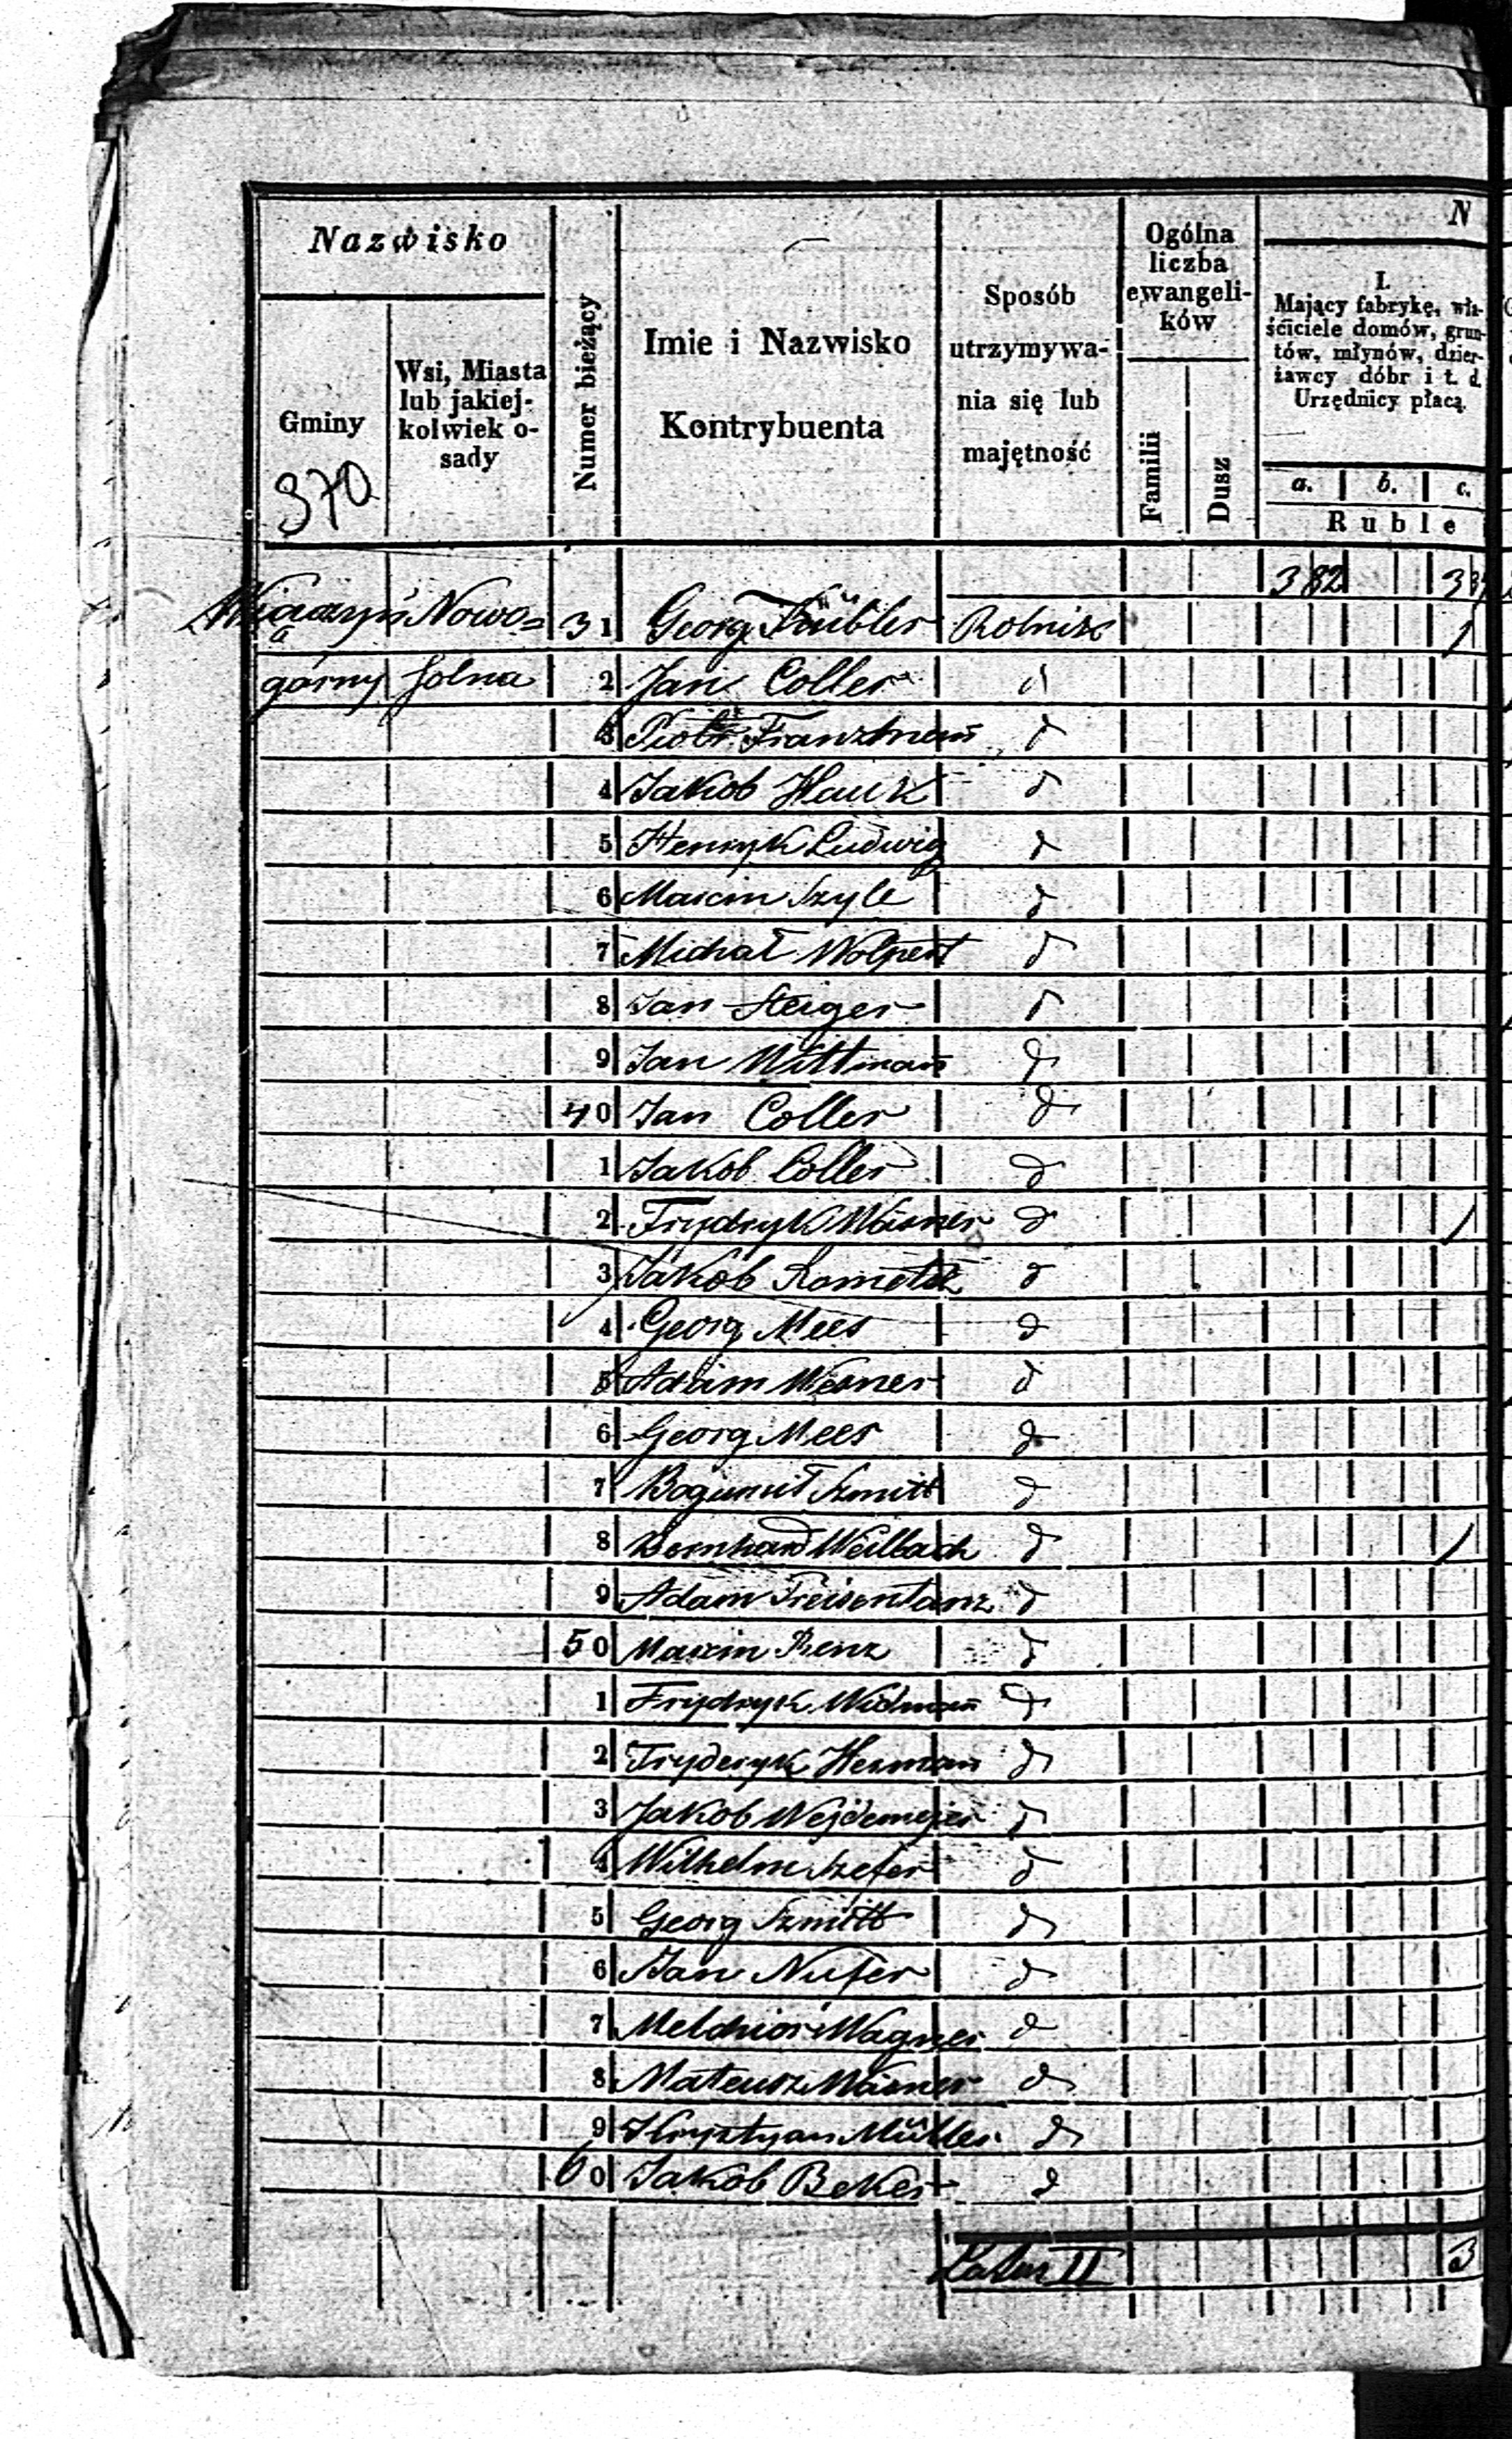 Nazwisko
Gminy
Wsi, Miasta
lub jakiej-
kolwiek o-
sady
Numer bieżący
Imie i Nazwisko
Kontrybuenta
Sposób
utrzymywa-
nia się lub
majętność
Ogólna
liczba
ewangeli-
ków
Familii
Dusz
N
I.
Mający fabrykę, wła-
ściciele domów, grun-
tów, młynów, dzier-
żawcy dóbr i t. d.
Urzędnicy płacą.
a. b. c.
Ruble
370
382
Wiączyń Nowo= 31 Georg Kübler Rolnik 1
górny solna 2 Jan Coller d
3 Piotr Franzman̄ d
4 Jakob Hauk d
5 Henryk Ludwig d
6 Marcin Szyle d
7 Michał Wolpert d
8 Jan Steiger d
9 Jan Wittman̄ d
40 Jan Coller d
1 Jakob Coller d
2 Frydryk Wäsner d 1
3 Jakób d
4 Georg Mees d
5 Adam Wesner d
6 Georg Mees d
7 Bogumił Szmitt d
8 Bernhard Weilbach d 1
9 Adam Freisentanz d
50 Marcin Renz d
1 Frydryk Widman̄ d
2 Fryderyk Herman̄ d
3 Jakob Wejdemejer d
4 Wilhelm Szefer d
5 Georg Szmitt d
6 Jan Nufer d
7 Melchior Wagner d
8 Mateusz Wäsner d
9 Krystyan Müller d
60 Jakób Beker d
Latus II 3